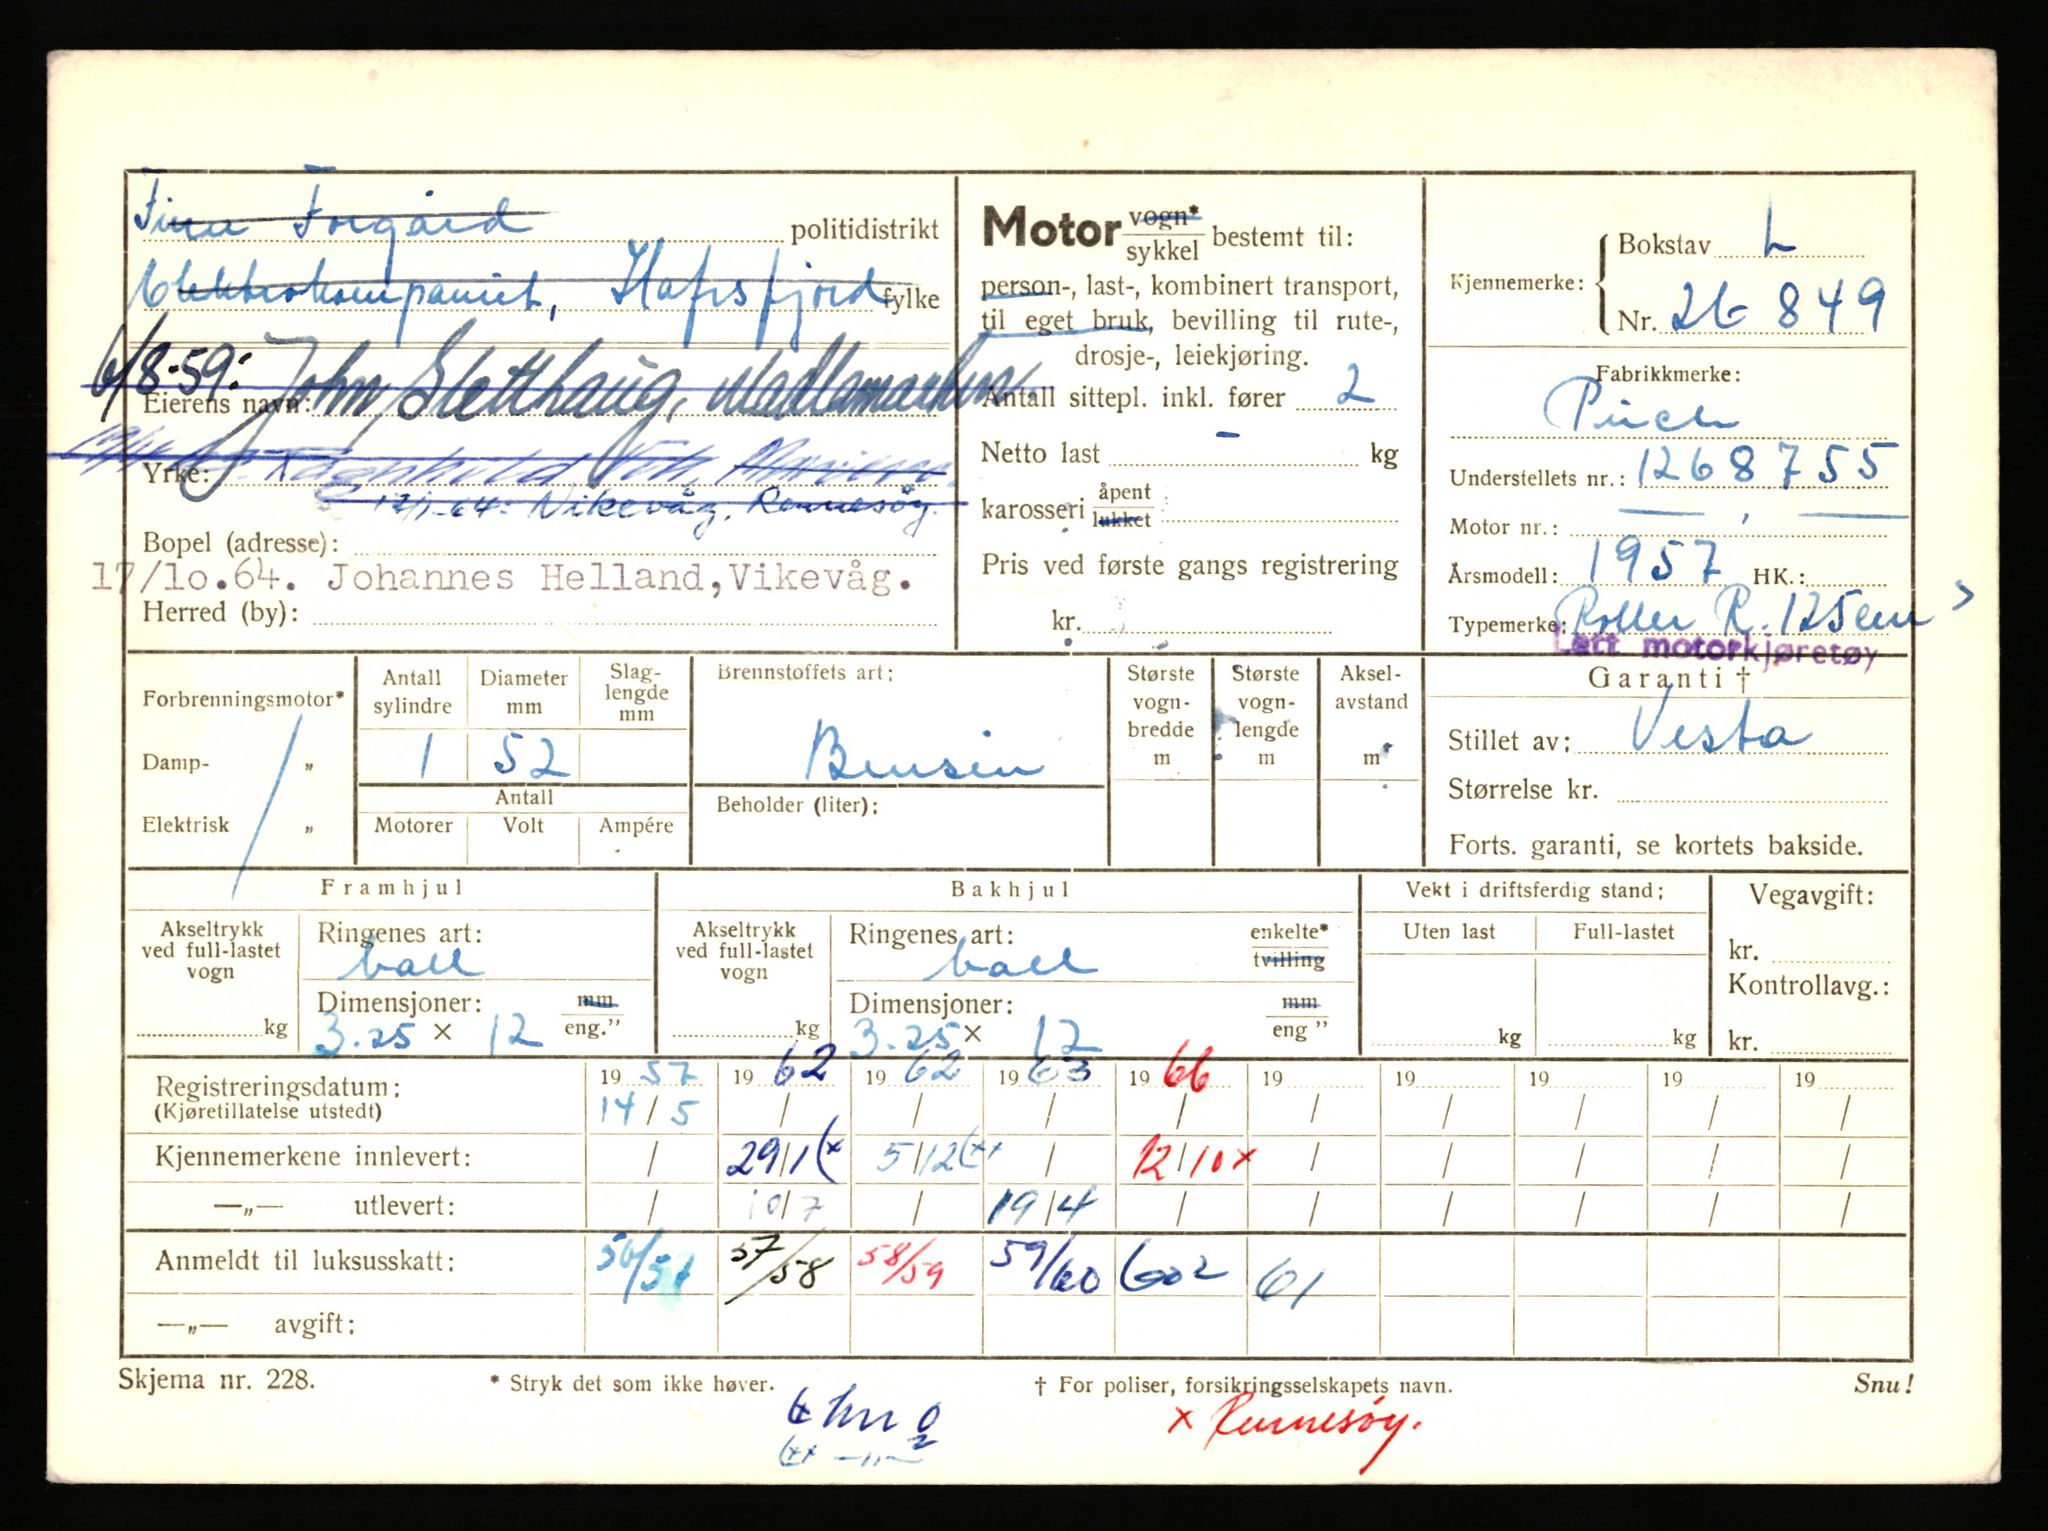 Finn Forgård politidistrikt
Elektrokompaniet, Hafrsfjord fylke
6/8-59: John Sletthaug, Madlamarken
Eierens navn:
Yrke: Ragnhild
17/1-64: Vikevåg, Rennesøy.
Bopel (adresse):
17/10.64. Johannes Helland,Vikevåg.
Herred (by):
Motor vogn*
sykkel bestemt til:
person-, last-, kombinert transport,
til eget bruk, bevilling til rute-,
drosje-, leiekjøring.
Antall sittepl. inkl. fører 2
Netto last - kg
karosseri åpent
lukket
Pris ved første gangs registrering
kr.
Kjennemerke: Bokstav L
Nr. 26849
Fabrikkmerke:
Puch
Understellets nr.: 1268755
Motor nr.: — , —
Årsmodell: 1957 HK.:
Typemerke: Roller R. 125 cm³
Lett motorkjøretøy
Forbrenningsmotor*
Damp- „
Elektrisk „
Antall sylindre 1
Diameter mm 52
Slag-lengde mm
Antall
Motorer Volt Ampére
Brennstoffets art:
Bensin
Beholder (liter):
Største vogn-bredde m
Største vogn-lengde m
Aksel-avstand m
Garanti †
Stillet av: Vesta
Størrelse kr.
Forts. garanti, se kortets bakside.
Framhjul
Akseltrykk ved full-lastet vogn
kg
Ringenes art:
ball
Dimensjoner: mm
3.25 × 12 eng."
Bakhjul
Akseltrykk ved full-lastet vogn
kg
Ringenes art: enkelte*
ball tvilling
Dimensjoner: mm
3.25 × 12 eng"
Vekt i driftsferdig stand:
Uten last Full-lastet
kg kg
Vegavgift:
kr.
Kontrollavg.:
kr.
Registreringsdatum: 19 57 19 62 19 62 19 63 19 66 19 19 19 19 19
(Kjøretillatelse utstedt) 14/5 / / / / / / / / /
Kjennemerkene innlevert: / 29/1 (x 5/12 (xx / 12/10 x / / / / /
—„— utlevert: / 10/7 / 19/4 / / / / / /
Anmeldt til luksusskatt: 56/57 57/58 58/59 59/60 602 61
—„— avgift:
Skjema nr. 228.
* Stryk det som ikke høver.
† For poliser, forsikringsselskapets navn.
Snu!
(xx —„—
x Rennesøy.